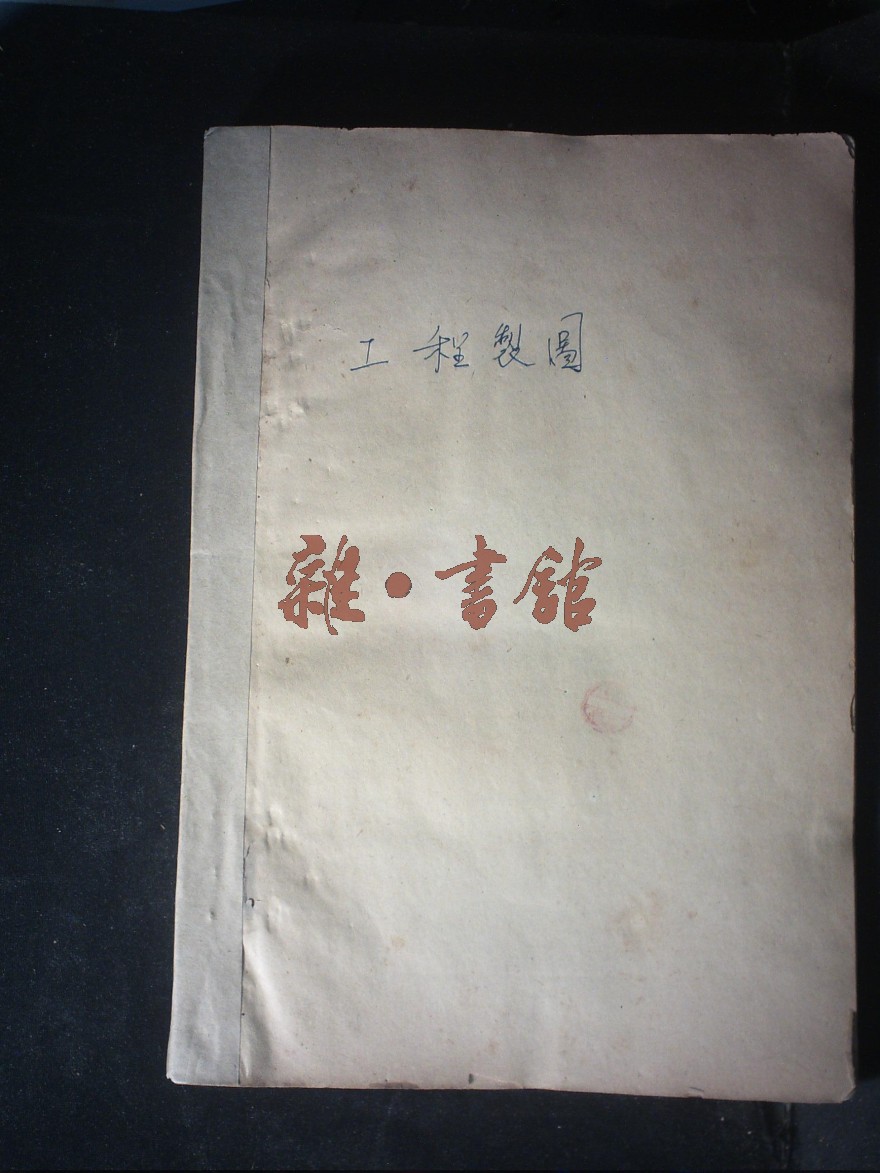 工程製圖
雜·書館